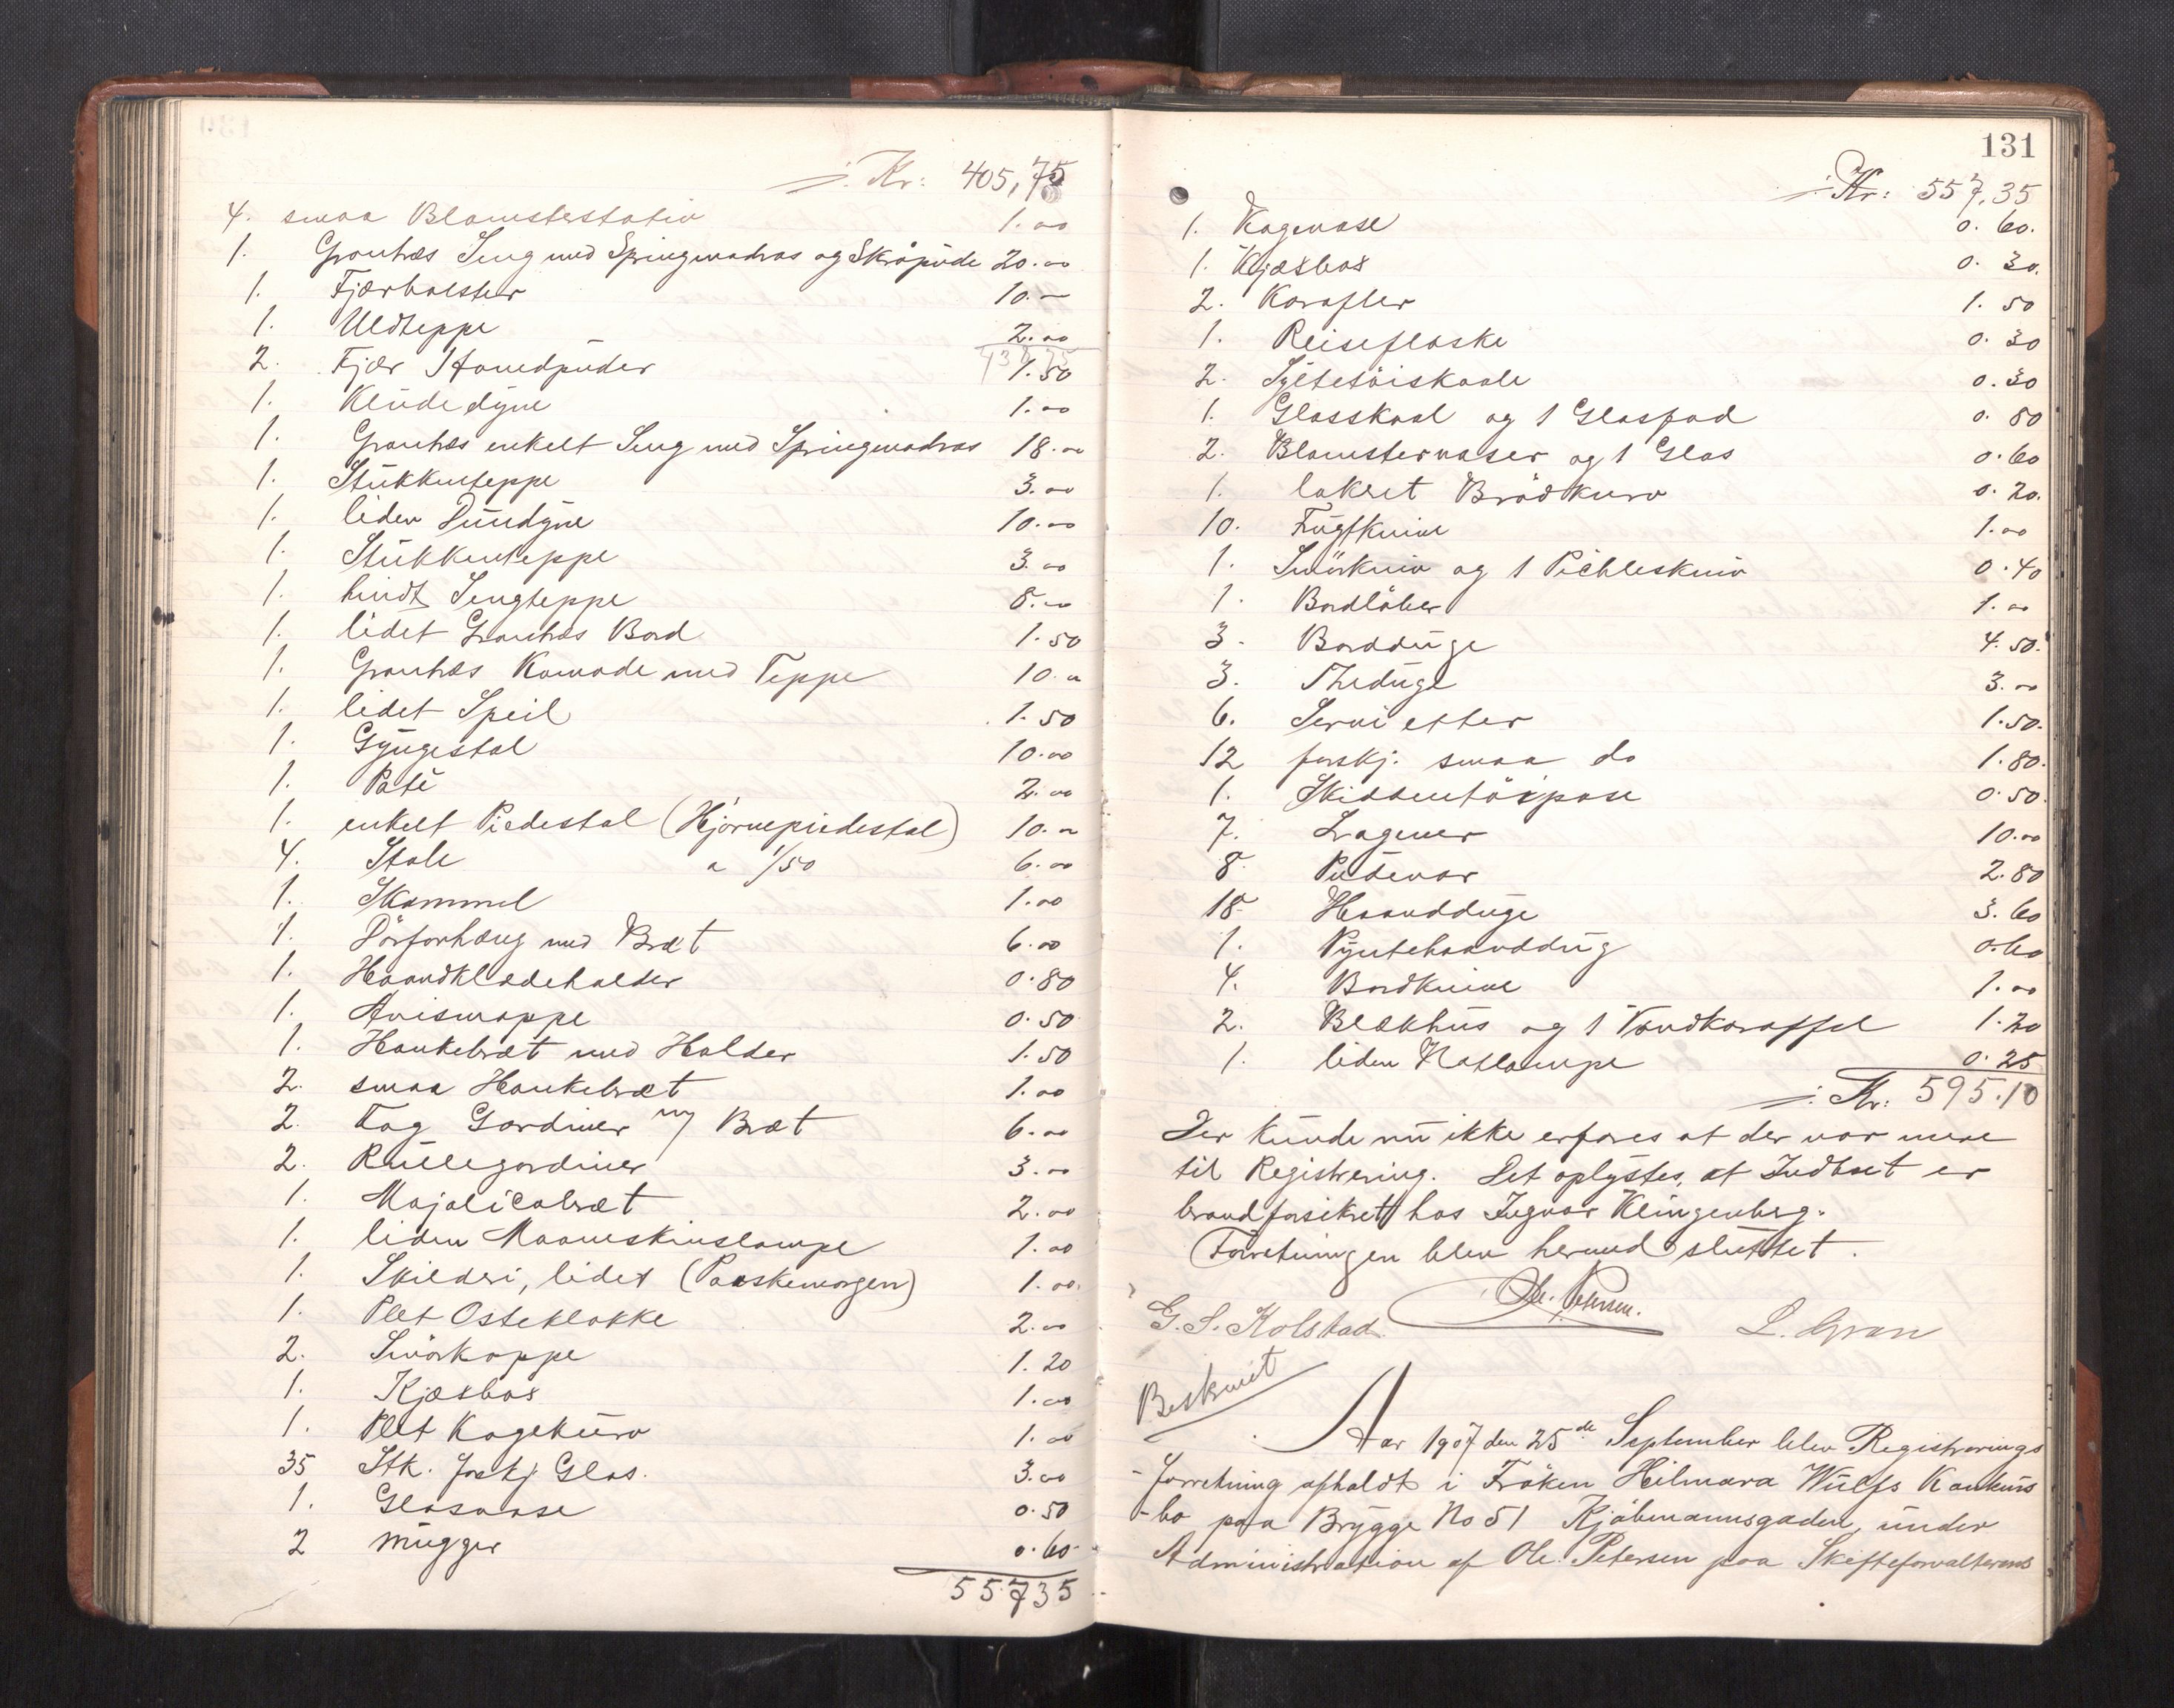 ÷ Kr: 405,75
4. smaa Blomsterstativ 1.00
1. Grantræs Seng med Springmadras og Skråpude 20.00
1. Fjærbolster 10.00
1. Uldteppe 2.00
2. Fjær Hovedpuder 1.50
1. Kludedyne 1.00
1. Grantræs enkelt Seng med Springmadras 18.00
1. Stukkenteppe 3.00
1. liden Dundyne 10.00
1. Stukkenteppe 3.00
1. hvidt Sengteppe 8.00
1. lidet Grantræs Bord 1.50
1. Grantræs Komode med Teppe 10.00
1. lidet Speil 1.50
1. Gyngestol 10.00
1. Paté 2.00
1. enkelt Piedestal (Hjørnepiedestal) 10.00
4. Stole a 1/50 6.00
1. Skammel 1.00
1. Dörforhæng med Bræt 6.00
1. Haandklædeholder 0.80
1. Avismappe 0.50
1. Hankebræt med Holder 1.50
2. smaa Hankebræt 1.00
2. Fag Gardiner m/ Bræt 6.00
2. Rullegardiner 3.00
1. Majolicabræt 2.00
1. liden Maaneskinslampe 1.00
1. Skilderi, lidet (Paaskemorgen) 1.00
1. Plet Osteklokke 2.00
2. Smörkoppe 1.20
1. Kjæxbox 1.00
1. Plet Kagekurv 1.00
35 Stk. forskj. Glas. 3.00
1. Glasvase 0.50
2 Mugger 0.60
557 35
131
÷ Kr: 557,35
1. Kagevase 0.60.
1. Kjæxbox 0.30.
2. Karafler 1.50
1. Reiseflaske 0.30
2. Syltetöiskaale 0.30
1. Glasskaal og 1 Glasfad 0.80
2. Blomstervaser og 1 Glas 0.60
1. lakeret Brödkurv 0.20.
10. Frugtknive 1.00
1. Smörkniv og 1 Pichleskniv 0.40
1. Bordlöber 1.00
3. Bordduge 4.50.
3. Theduge 3.00
6. Servietter 1.50.
12 forskj. smaa do 1.80.
1. Skiddentöipose 0.50.
7. Lagener 10.00
8 Pudevar 2.80
18 Haandduge 3.60
1. Pyntehaanddug 0.60
4. Bordknive 1.00
2. Blækhus og 1 Vandkaraffel 1.20
1. liden Natlampe 0.25
÷ Kr: 595.10
Der kunde nu ikke erfares at der var mere
til Registrering. Det oplystes, at Indboet er
brandforsikret hos Ingvar Klingenberg.
Forretningen blev hermed sluttet.
Ole Petersen.
G. S. Kolstad. L. Gran
Beskrevet
Aar 1907 den 25de September blev Registrerings
-forretning afholdt i Fröken Hilmara Wulfs Konkurs
-bo paa Brygge No 51 Kjöbmannsgaden, under
Administration af Ole Petersen paa Skifteforvalterens